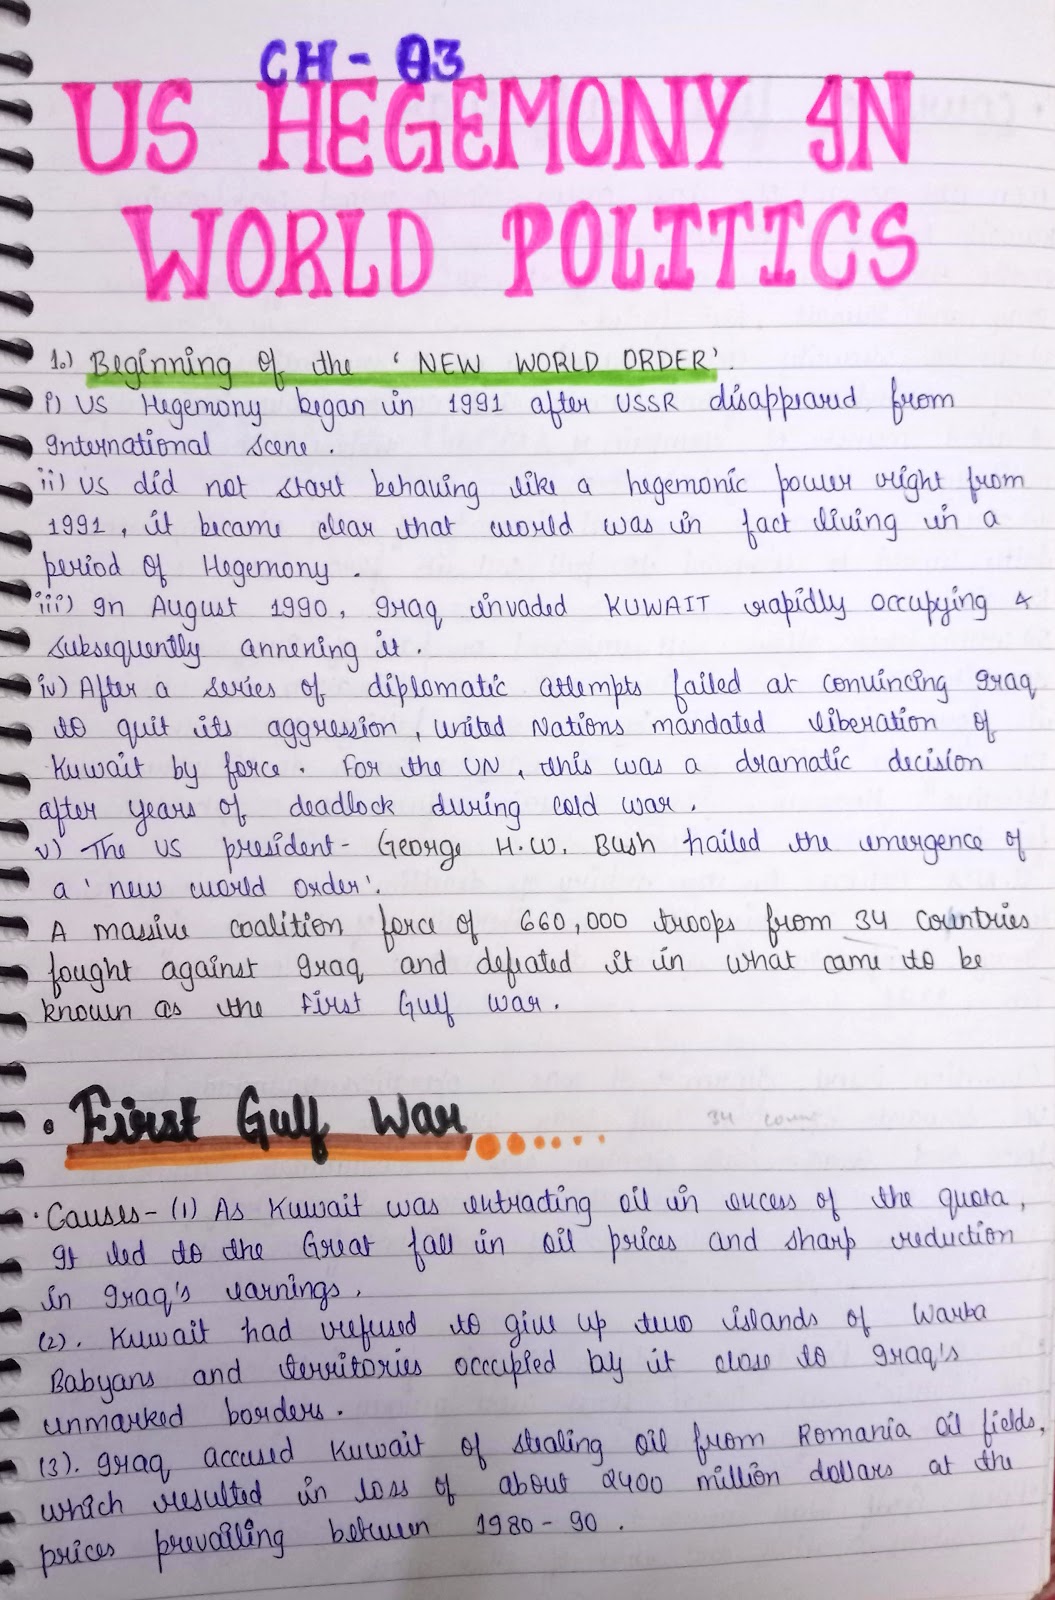 CH - 03
US HEGEMONY IN
WORLD POLITICS
1.) Beginning of the ' NEW WORLD ORDER'.
i) US Hegemony began in 1991 after USSR disappeared from
International scene.
ii) US did not start behaving like a hegemonic power right from
1991, it became clear that world was in fact living in a
period of Hegemony.
iii) In August 1990, Iraq invaded KUWAIT rapidly occupying &
subsequently annexing it.
iv) After a series of diplomatic attempts failed at convincing Iraq
to quit its aggression, United Nations mandated liberation of
Kuwait by force. For the UN, this was a dramatic decision
after years of deadlock during cold war.
v) The US president - George H.W. Bush hailed the emergence of
a 'new world order'.
A massive coalition force of 660,000 troops from 34 countries
fought against Iraq and defeated it in what came to be
known as the First Gulf war.
• First Gulf War
34 count
• Causes - (1) As Kuwait was extracting oil in excess of the quota,
It led to the Great fall in oil prices and sharp reduction
in Iraq's earnings.
(2). Kuwait had refused to give up two islands of Warba
Babyans and territories occcupied by it close to Iraq's
unmarked borders.
(3). Iraq accused Kuwait of stealing oil from Romania oil fields,
which resulted in loss of about 2400 million dollars at the
prices prevailing between 1980 - 90.